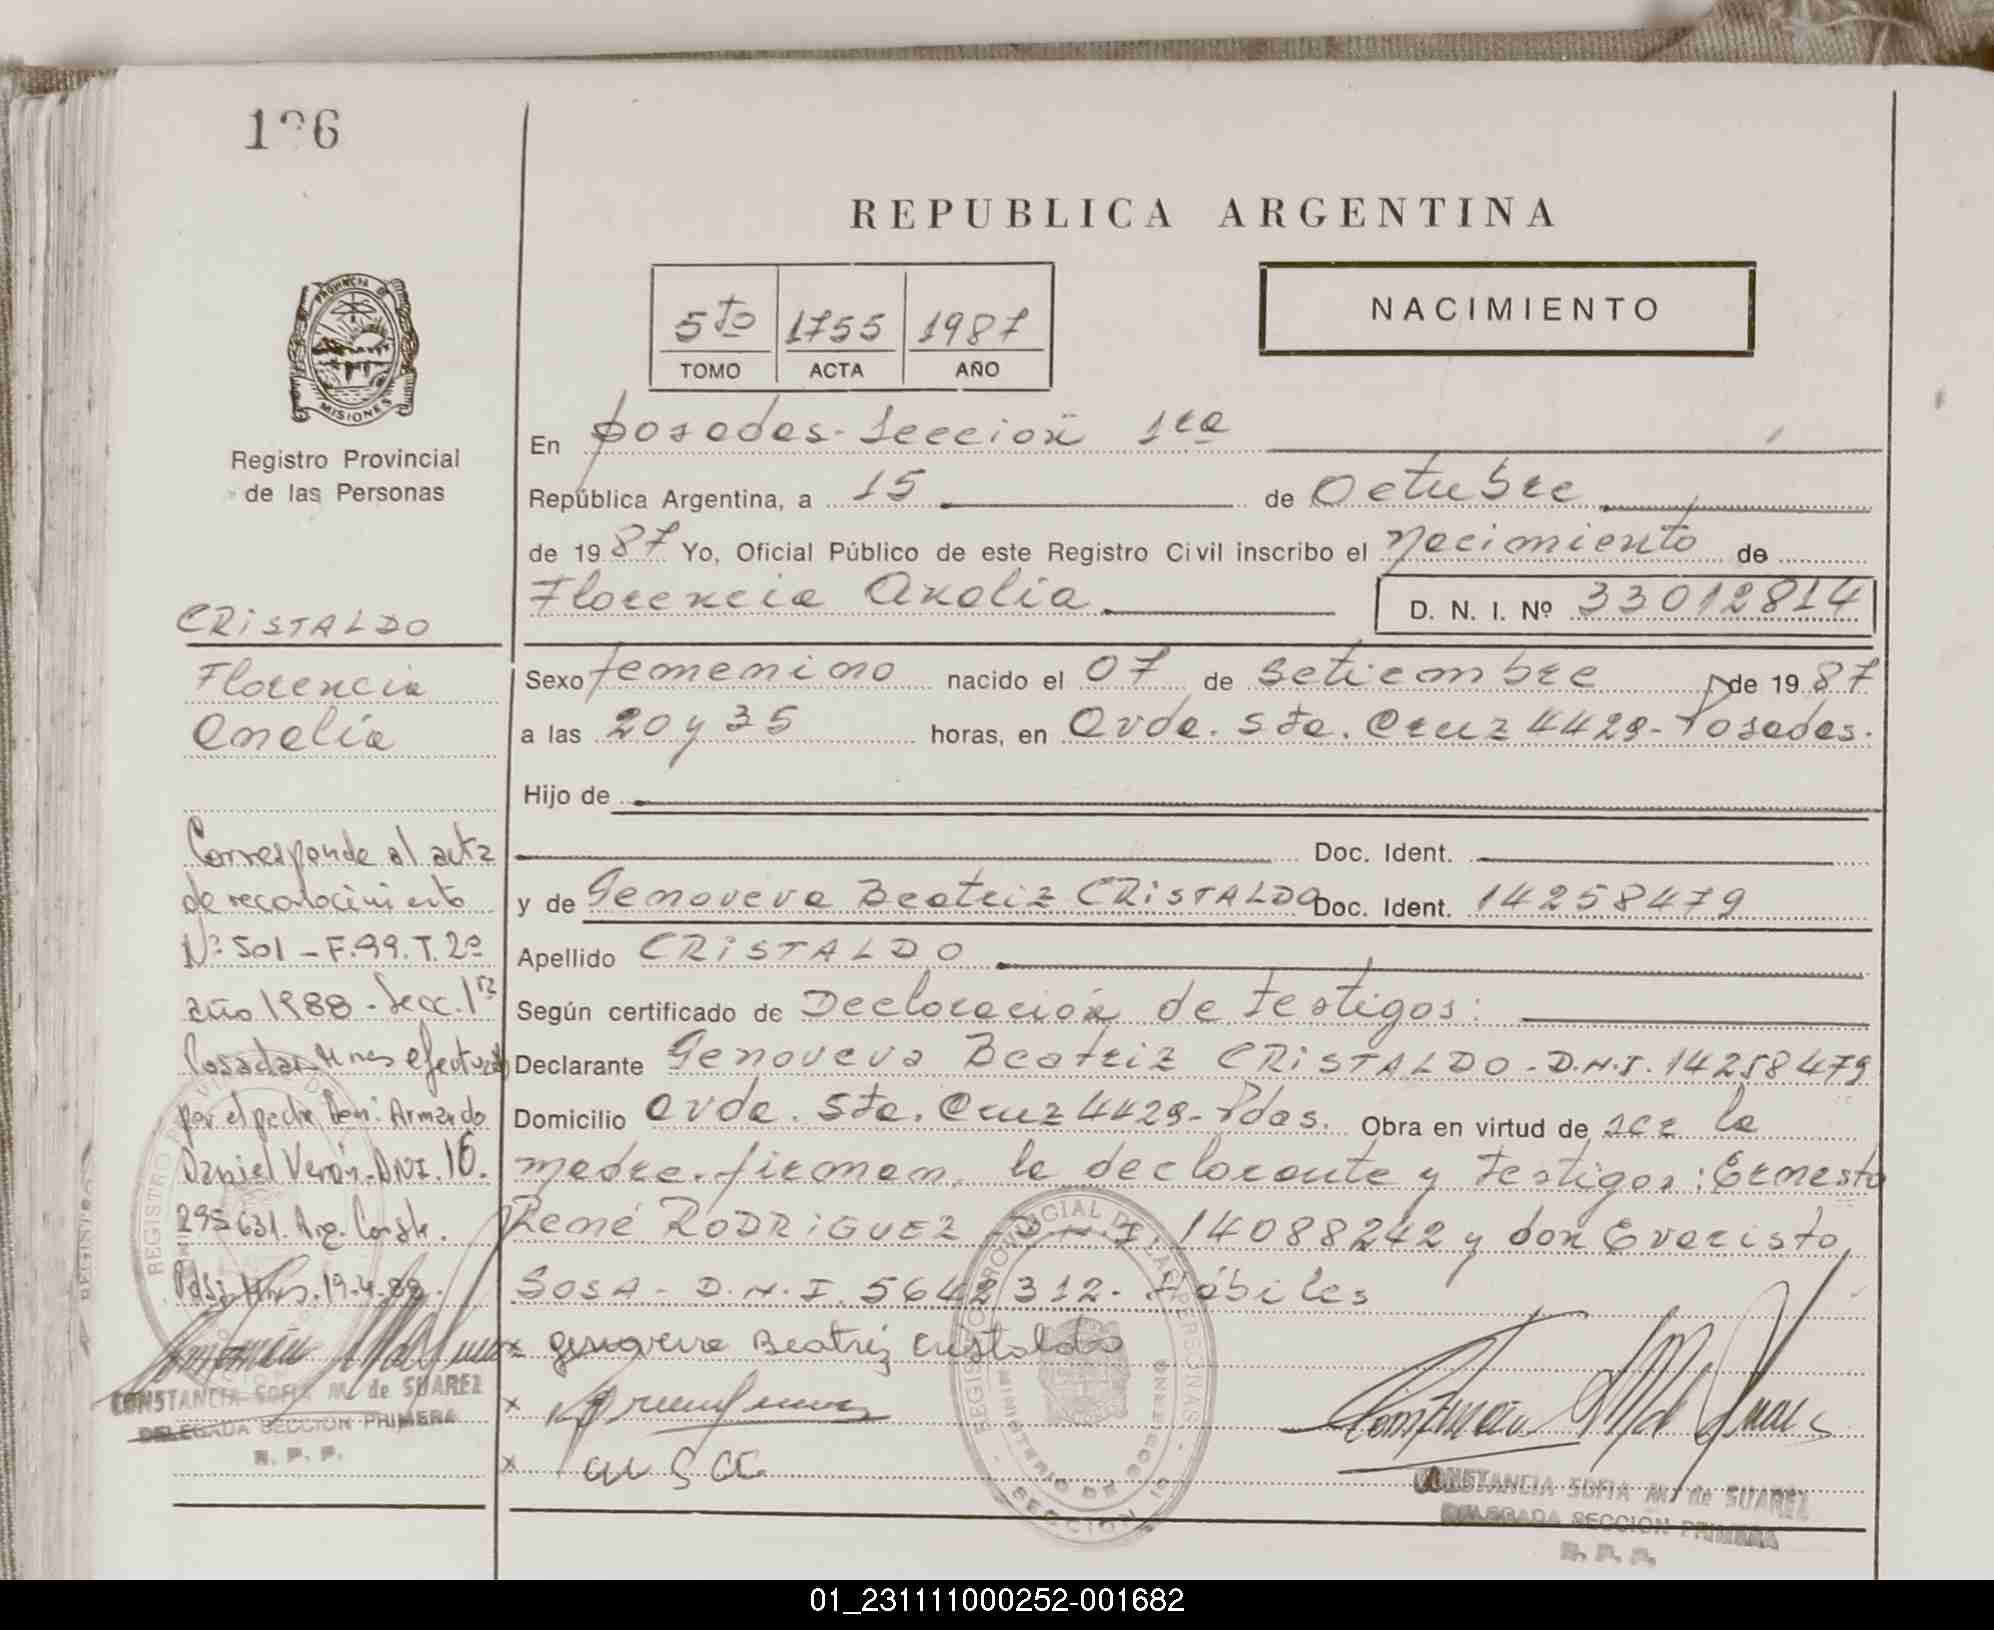 REPUBLICA ARGENTINA
NACIMIENTO
5to 1755 1987
TOMO ACTA AÑO
PROVINCIA D
MISIONES
Registro Provincial
de las Personas
En Posadas - Sección 1ra
República Argentina, a 15 de Octubre
de 1987 Yo, Oficial Público de este Registro Civil inscribo el Nacimiento de
Florencia Analia D. N. I. Nº 33012814
Sexo femenino nacido el 07 de Setiembre de 1987
a las 20 y 35 horas, en Avda. Sta. Cruz 4429 - Posadas.
Hijo de
Doc. Ident.
y de Genoveva Beatriz CRISTALDO Doc. Ident. 14258479
Apellido CRISTALDO
Según certificado de Declaración de testigos:
Declarante Genoveva Beatriz CRISTALDO - D.N.I. 14258479
Domicilio Avda. Sta. Cruz 4429 - Pdas. Obra en virtud de ser la
madre. firman la declarante y testigos: Ernesto
René RODRIGUEZ D.N.I. 14088242 y don Evaristo
SOSA - D.N.I. 5642312. Hábiles
x Genoveva Beatriz Cristaldo
x
x
CONSTANCIA SOFIA M. de SUAREZ
DELEGADA SECCION PRIMERA
R. P. P.
CRISTALDO
Florencia
Analía
Corresponde al acta
de reconocimiento
Nº 501 - F. 99. T. 2º
año 1988 - Secc. 1ra
Posadas Mnes efectuado
por el padre Armando
Daniel Verón - DNI. 16.
295631. Arg. Conste.
Pdas. Mns. 19-4-88.
CONSTANCIA SOFIA M. de SUAREZ
DELEGADA SECCION PRIMERA
R. P. P.
REGISTRO PROVINCIAL DE LAS PERSONAS
MINISTERIO DE GOBIERNO
SECCION
01_231111000252-001682